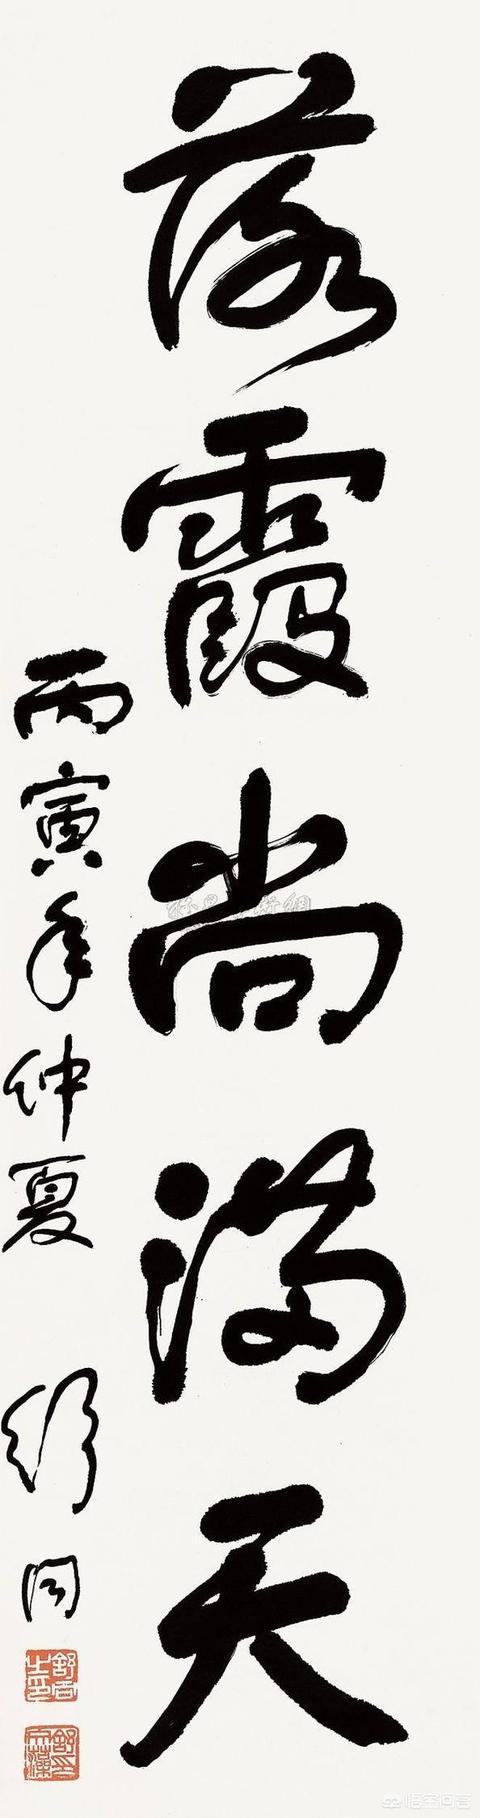 落霞尚滿天
丙寅年仲夏 舒同
舒同之印
悟空问答